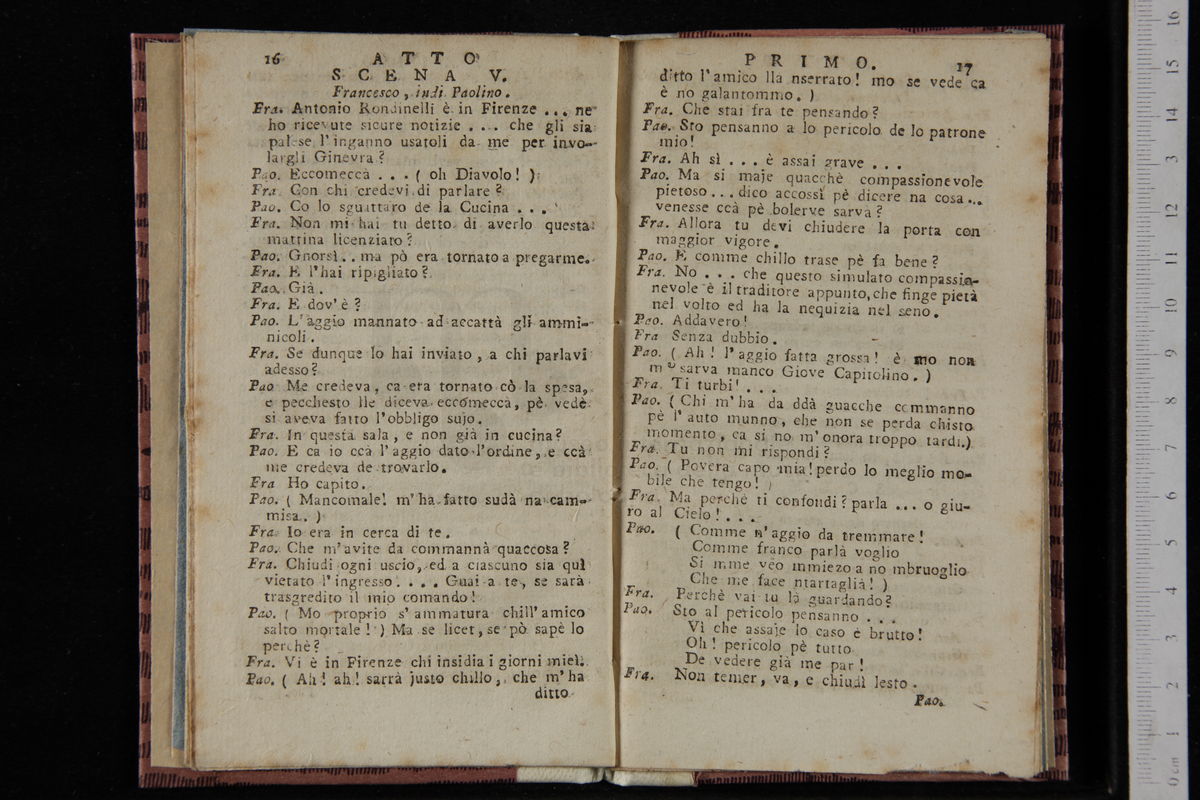 16
ATTO
SCENA V.
Francesco, indi Paolino.
Fra. Antonio Rondinelli è in Firenze ... ne
ho ricevute sicure notizie .... che gli sia
palese l'inganno usatoli da me per invo-
largli Ginevra?
Pao. Eccomeccà ... ( oh Diavolo! )
Fra. Con chi credevi di parlare?
Pao. Co lo sguattaro de la Cucina ...
Fra. Non mi hai tu detto di averlo questa
mattina licenziato?
Pao. Gnorsì.. ma pò era tornato a pregarme.
Fra. E l'hai ripigliato?
Pao. Già.
Fra. E dov'è?
Pao. L'aggio mannato ad accattà gli ammi-
nicoli.
Fra. Se dunque lo hai inviato, a chi parlavi
adesso?
Pao Me credeva, ca era tornato cò la spesa,
e pecchesto lle diceva eccomeccà, pè vedè
si aveva fatto l'obbligo sujo.
Fra. In questa sala, e non già in cucina?
Pao. E ca io ccà l'aggio dato l'ordine, e ccà
me credeva de trovarlo.
Fra Ho capito.
Pao. ( Mancomale! m'ha fatto sudà na cam-
misa. )
Fra. Io era in cerca di te.
Pao. Che m'avite da commannà quaccosa?
Fra. Chiudi ogni uscio, ed a ciascuno sia quì
vietato l'ingresso .... Guai a te, se sarà
trasgredito il mio comando!
Pao. ( Mo proprio s'ammatura chill'amico
salto mortale! ) Ma se licet, se pò sapè lo
perchè?
Fra. Vi è in Firenze chi insidia i giorni miei.
Pao. ( Ah! ah! sarrà justo chillo, che m'ha
ditto
PRIMO.
17
ditto l'amico lla nserrato! mo se vede ca
è no galantommo. )
Fra. Che stai fra te pensando?
Pao. Sto pensanno a lo pericolo de lo patrone
mio!
Fra. Ah sì ... è assai grave ...
Pao. Ma si maje quacchè compassionevole
pietoso... dico accossì pè dicere na cosa...
venesse ccà pè bolerve sarva?
Fra. Allora tu devi chiudere la porta con
maggior vigore.
Pao. E comme chillo trase pè fa bene?
Fra. No ... che questo simulato compassio-
nevole è il traditore appunto, che finge pietà
nel volto ed ha la nequizia nel seno.
Pao. Addavero!
Fra Senza dubbio.
Pao. ( Ah! l'aggio fatta grossa! è mo non
m'o sarva manco Giove Capitolino. )
Fra. Ti turbi! ...
Pao. ( Chi m'ha da ddà quacche commanno
pè l'auto munno, che non se perda chisto
momento, ca si no m'onora troppo tardi.)
Fra. Tu non mi rispondi?
Pao. ( Povera capo mia! perdo lo meglio mo-
bile che tengo! )
Fra. Ma perchè ti confondi? parla ... o giu-
ro al Cielo! ...
Pao. ( Comme n'aggio da tremmare!
Comme franco parlà voglio
Si mme veo mmiezo a no mbruoglio
Che me face ntartaglià! )
Fra. Perchè vai tu là guardando?
Pao. Sto al pericolo pensanno ...
Vì che assaje lo caso è brutto!
Oh! pericolo pè tutto
De vedere già me par!
Fra. Non temer, va, e chiudi lesto.
Pao.